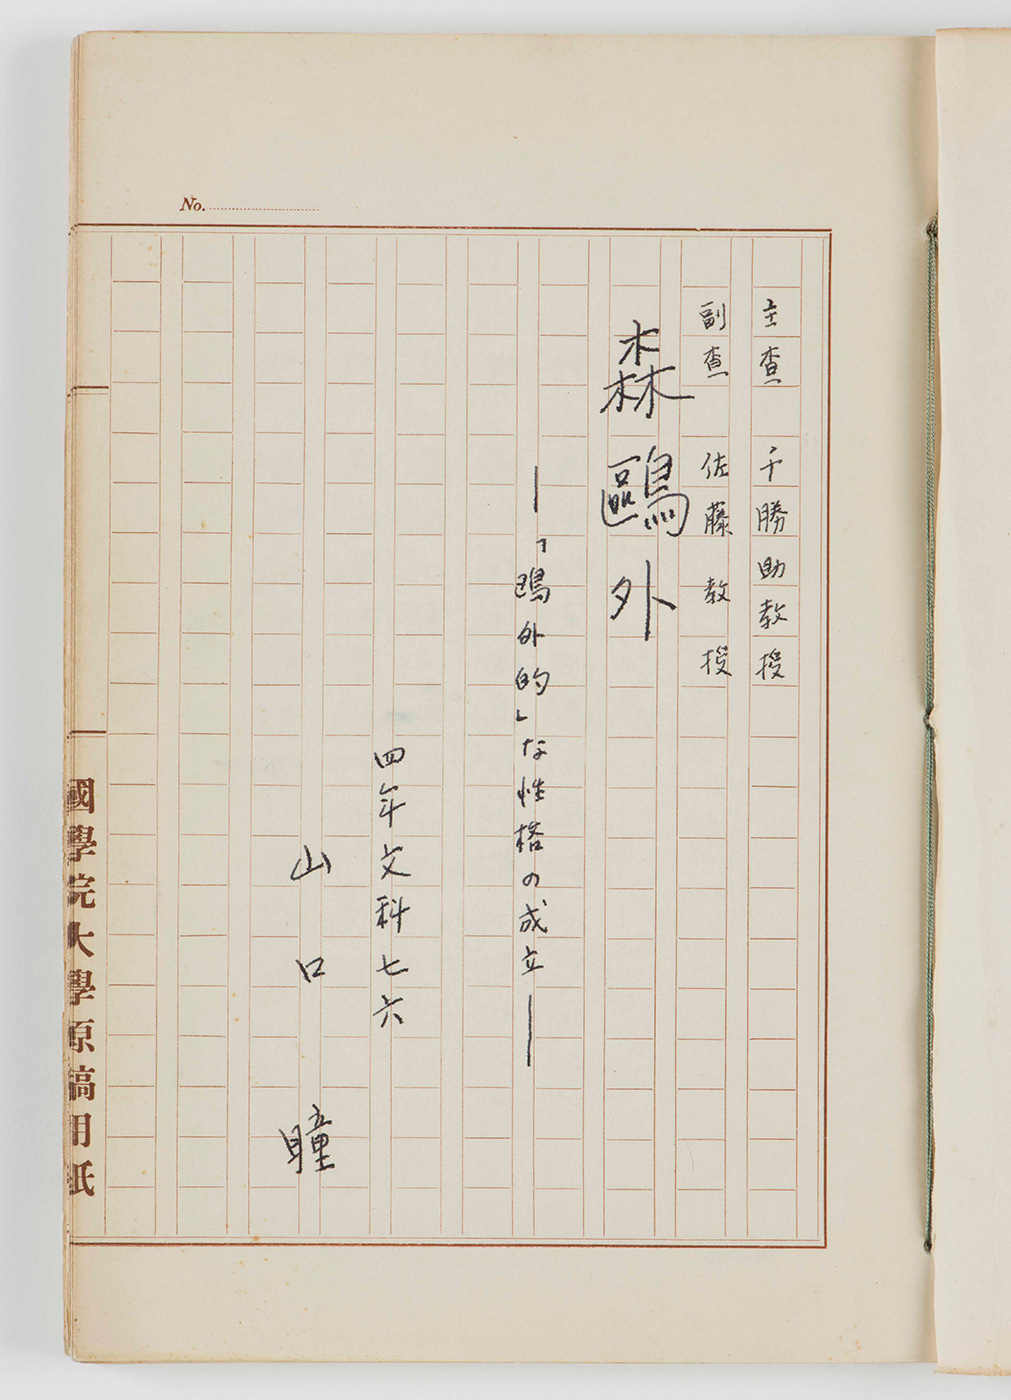 No.
主査 千勝助教授
副査 佐藤教授
森鷗外
―「鷗外的」な性格の成立―
四年文科七六
山口 瞳
國學院大學原稿用紙